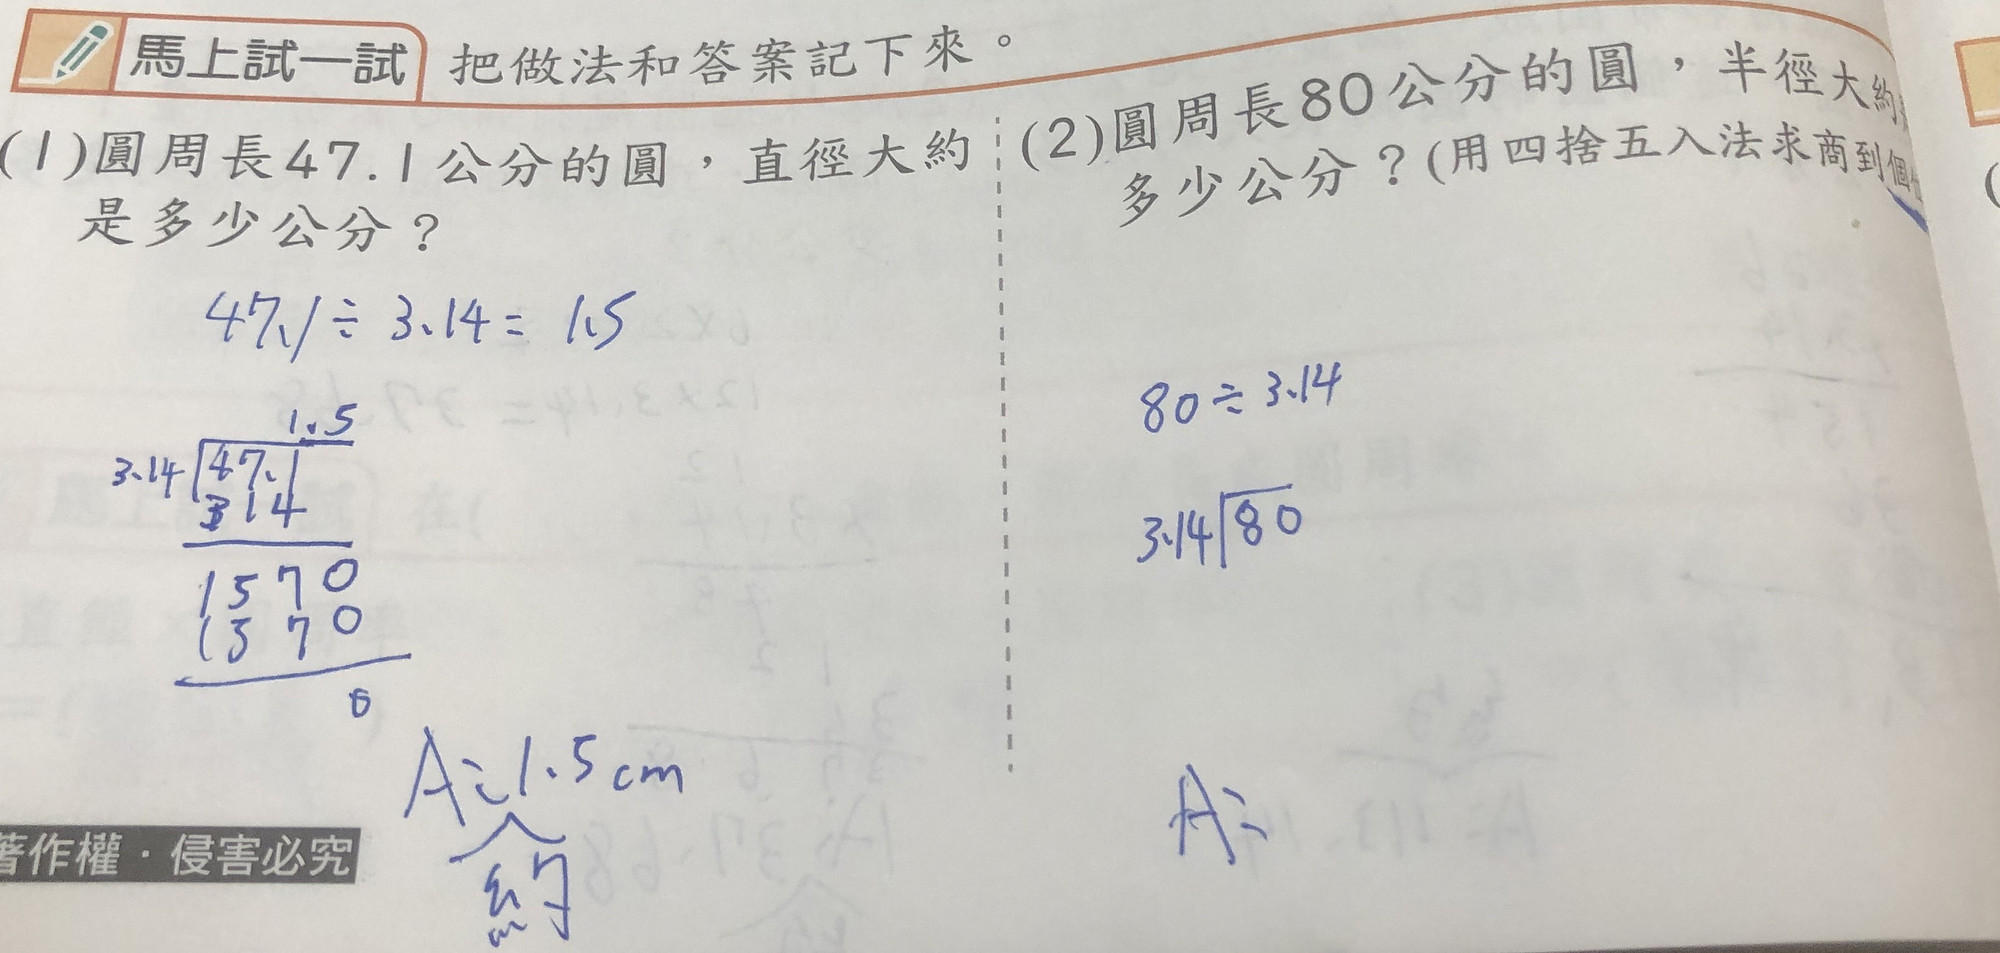 馬上試一試 把做法和答案記下來。
(1)圓周長47.1公分的圓，直徑大約
是多少公分？
47.1÷3.14=1.5
1.5
3.14 47.1
314
1570
1570
0
A:1.5cm
約
(2)圓周長80公分的圓，半徑大約
多少公分？(用四捨五入法求商到個
80÷3.14
3.14 80
A:
著作權·侵害必究